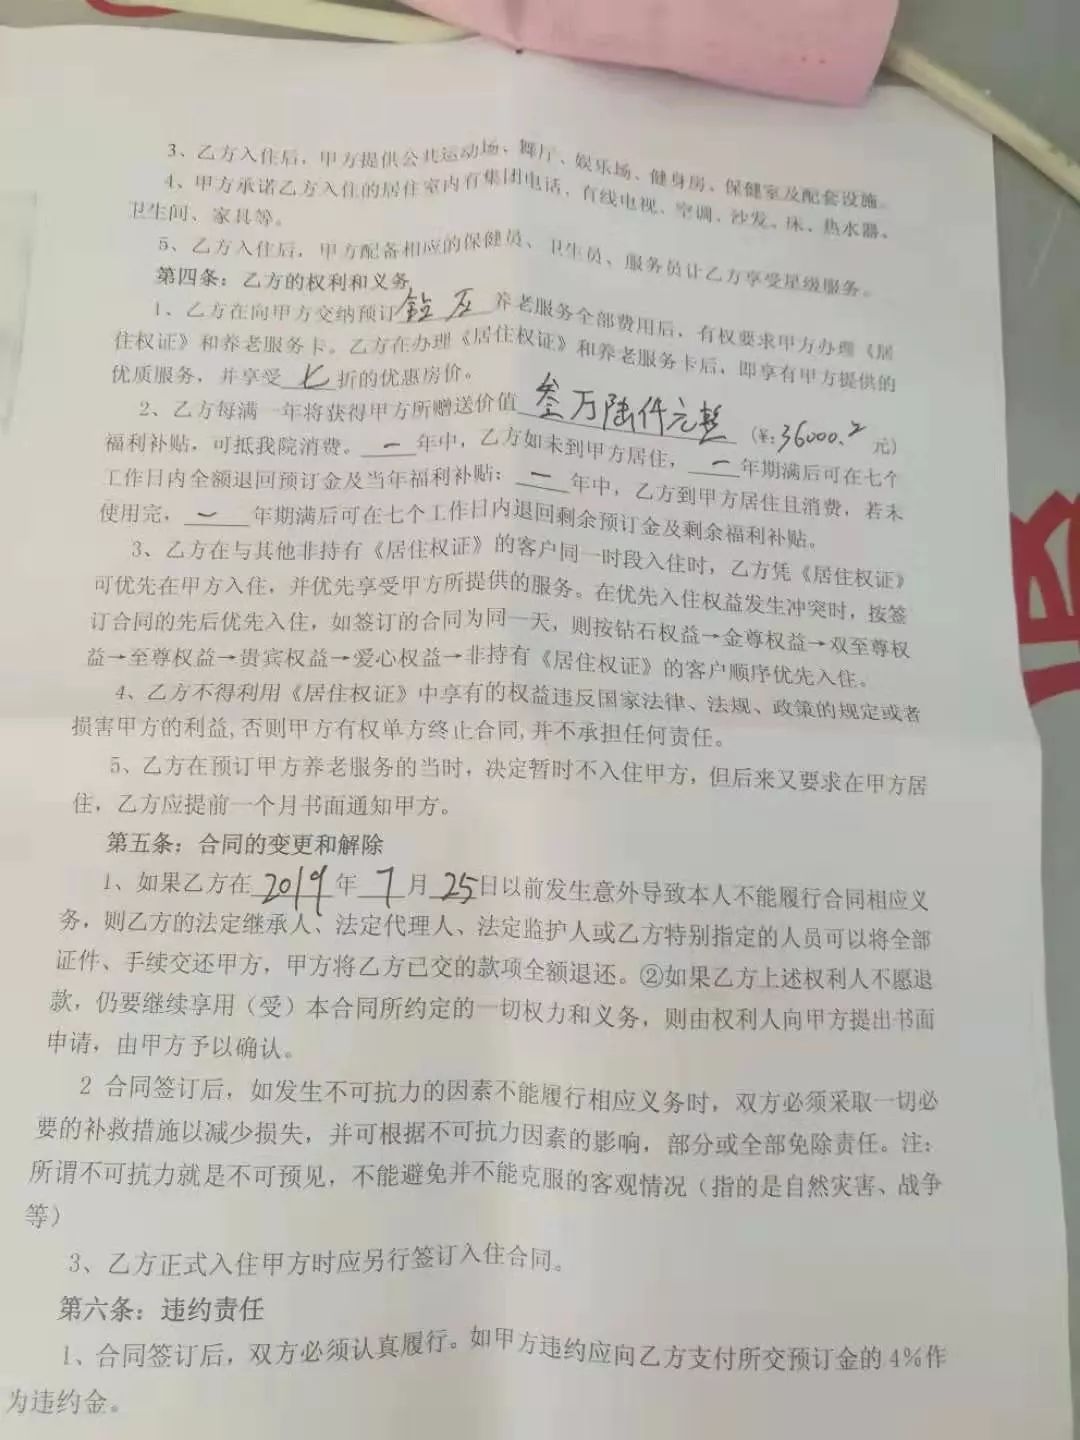 3、乙方入住后，甲方提供公共运动场、舞厅、娱乐场、健身房、保健室及配套设施。
4、甲方承诺乙方入住的居住室内有集团电话、有线电视、空调、沙发、床、热水器、
卫生间、家具等。
5、乙方入住后，甲方配备相应的保健员、卫生员、服务员让乙方享受星级服务。
第四条：乙方的权利和义务
1、乙方在向甲方交纳预订钻石养老服务全部费用后，有权要求甲方办理《居
住权证》和养老服务卡。乙方在办理《居住权证》和养老服务卡后，即享有甲方提供的
优质服务，并享受七折的优惠房价。
2、乙方每满一年将获得甲方所赠送价值叁万陆仟元整（¥:36000.元）
福利补贴，可抵我院消费。一年中，乙方如未到甲方居住，一年期满后可在七个
工作日内全额退回预订金及当年福利补贴；一年中，乙方到甲方居住且消费，若未
使用完，一年期满后可在七个工作日内退回剩余预订金及剩余福利补贴。
3、乙方在与其他非持有《居住权证》的客户同一时段入住时，乙方凭《居住权证》
可优先在甲方入住，并优先享受甲方所提供的服务。在优先入住权益发生冲突时，按签
订合同的先后优先入住，如签订的合同为同一天，则按钻石权益→金尊权益→双至尊权
益→至尊权益→贵宾权益→爱心权益→非持有《居住权证》的客户顺序优先入住。
4、乙方不得利用《居住权证》中享有的权益违反国家法律、法规、政策的规定或者
损害甲方的利益,否则甲方有权单方终止合同,并不承担任何责任。
5、乙方在预订甲方养老服务的当时，决定暂时不入住甲方，但后来又要求在甲方居
住，乙方应提前一个月书面通知甲方。
第五条：合同的变更和解除
1、如果乙方在2019年7月25日以前发生意外导致本人不能履行合同相应义
务，则乙方的法定继承人、法定代理人、法定监护人或乙方特别指定的人员可以将全部
证件、手续交还甲方，甲方将乙方已交的款项全额退还。②如果乙方上述权利人不愿退
款，仍要继续享用（受）本合同所约定的一切权力和义务，则由权利人向甲方提出书面
申请，由甲方予以确认。
2 合同签订后，如发生不可抗力的因素不能履行相应义务时，双方必须采取一切必
要的补救措施以减少损失，并可根据不可抗力因素的影响，部分或全部免除责任。注：
所谓不可抗力就是不可预见，不能避免并不能克服的客观情况（指的是自然灾害、战争
等）
3、乙方正式入住甲方时应另行签订入住合同。
第六条：违约责任
1、合同签订后，双方必须认真履行。如甲方违约应向乙方支付所交预订金的4%作
为违约金。